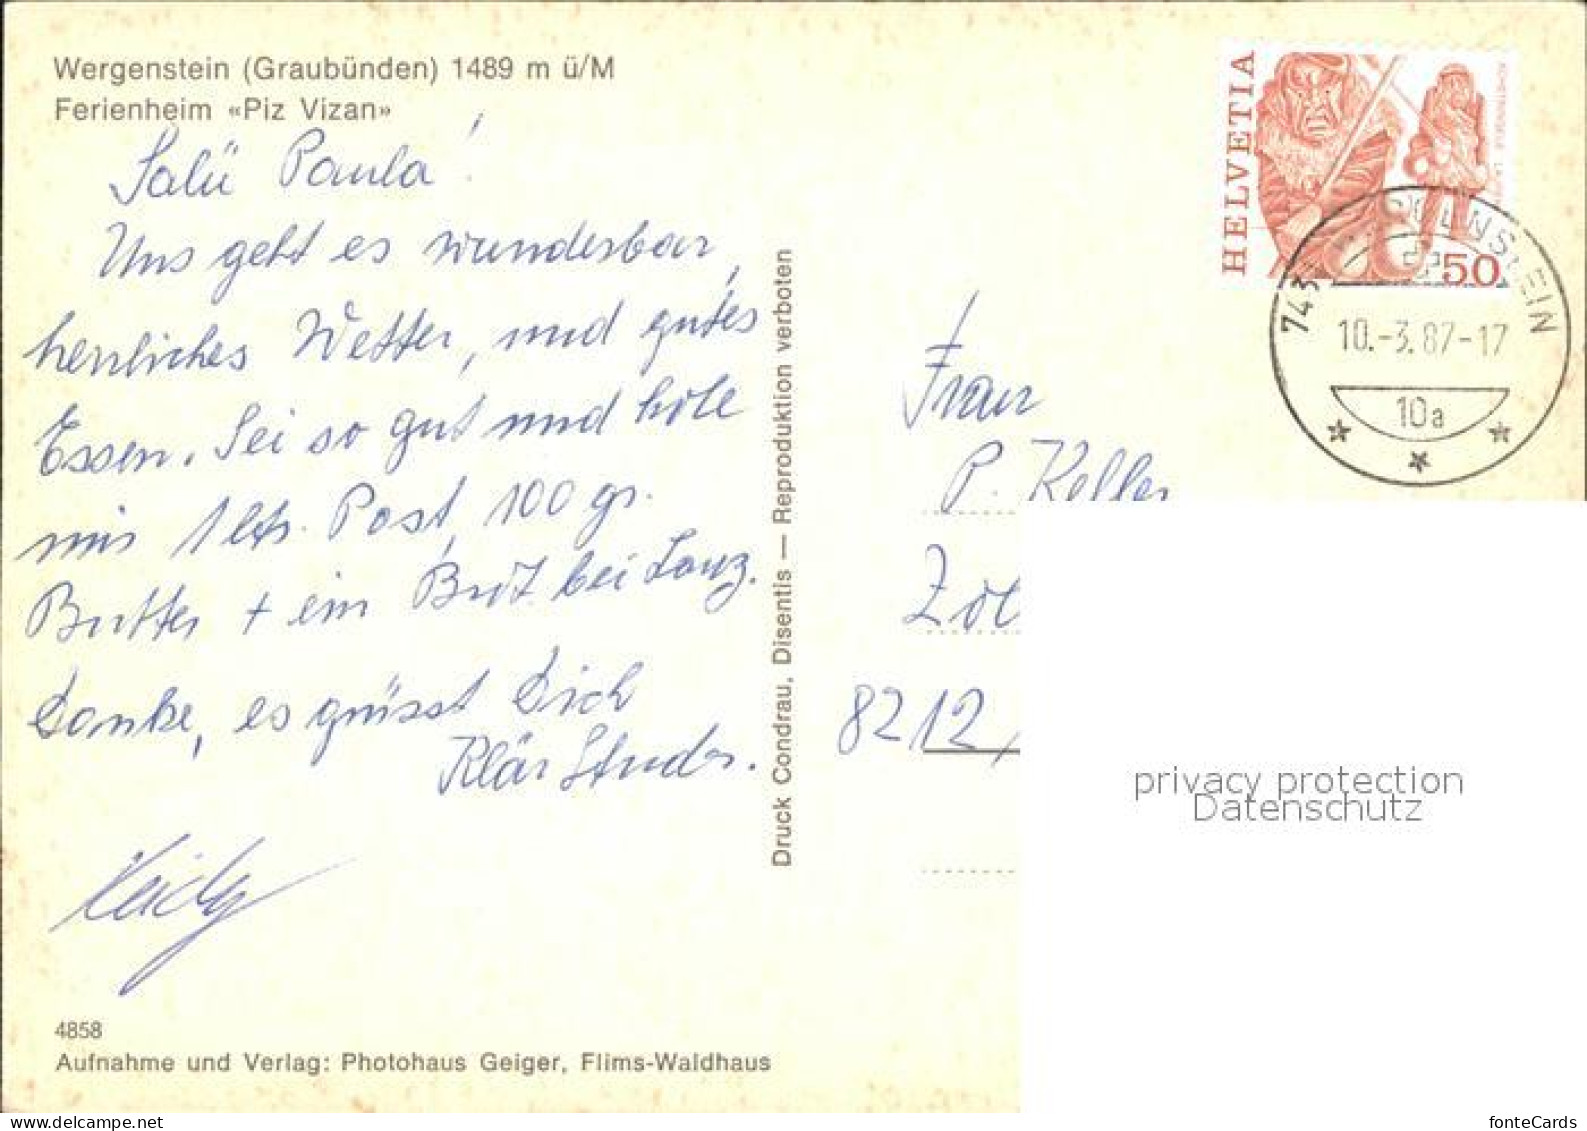 Wergenstein (Graubünden) 1489 m ü/M
Ferienheim «Piz Vizan»
Salü Paula!
Uns geht es wunderbar,
herrliches Wetter, und gutes
Essen. Sei so gut und hole
mir 1 ltr. Post, 100 gr.
Butter + ein Brot bei Lanz.
Danke, es grüsst Dich
Klär Studer.
4858
Aufnahme und Verlag: Photohaus Geiger, Flims-Waldhaus
Druck Condrau, Disentis — Reproduktion verboten
HELVETIA
50
10.-3.87-17
10a
Frau
P. Keller
8212
privacy protection
Datenschutz
fonteCards